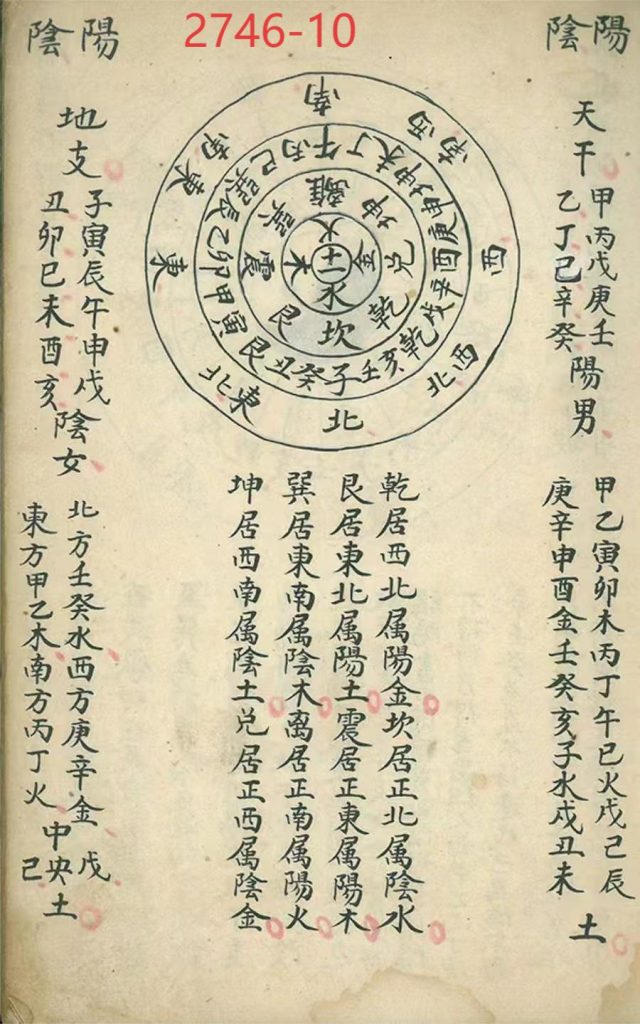 2746-10
陽陰
天干
甲丙戊庚壬
乙丁己辛癸
陽男
甲乙寅卯木丙丁午巳火戊己辰
庚辛申酉金壬癸亥子水戌丑未
土
南
西南
西
西北
北
東北
東
東南
午丁未坤申庚酉辛戌乾亥壬子癸丑艮寅甲卯乙辰巽巳丙
離坤兌乾坎艮震巽
火金水木
土
乾居西北属陽金坎居正北属陰水
艮居東北属陽土震居正東属陽木
巽居東南属陰木离居正南属陽火
坤居西南属陰土兌居正西属陰金
陽陰
地支
子寅辰午申戌
丑卯巳未酉亥
陰女
北方壬癸水西方庚辛金
東方甲乙木南方丙丁火
中央
戊己
土